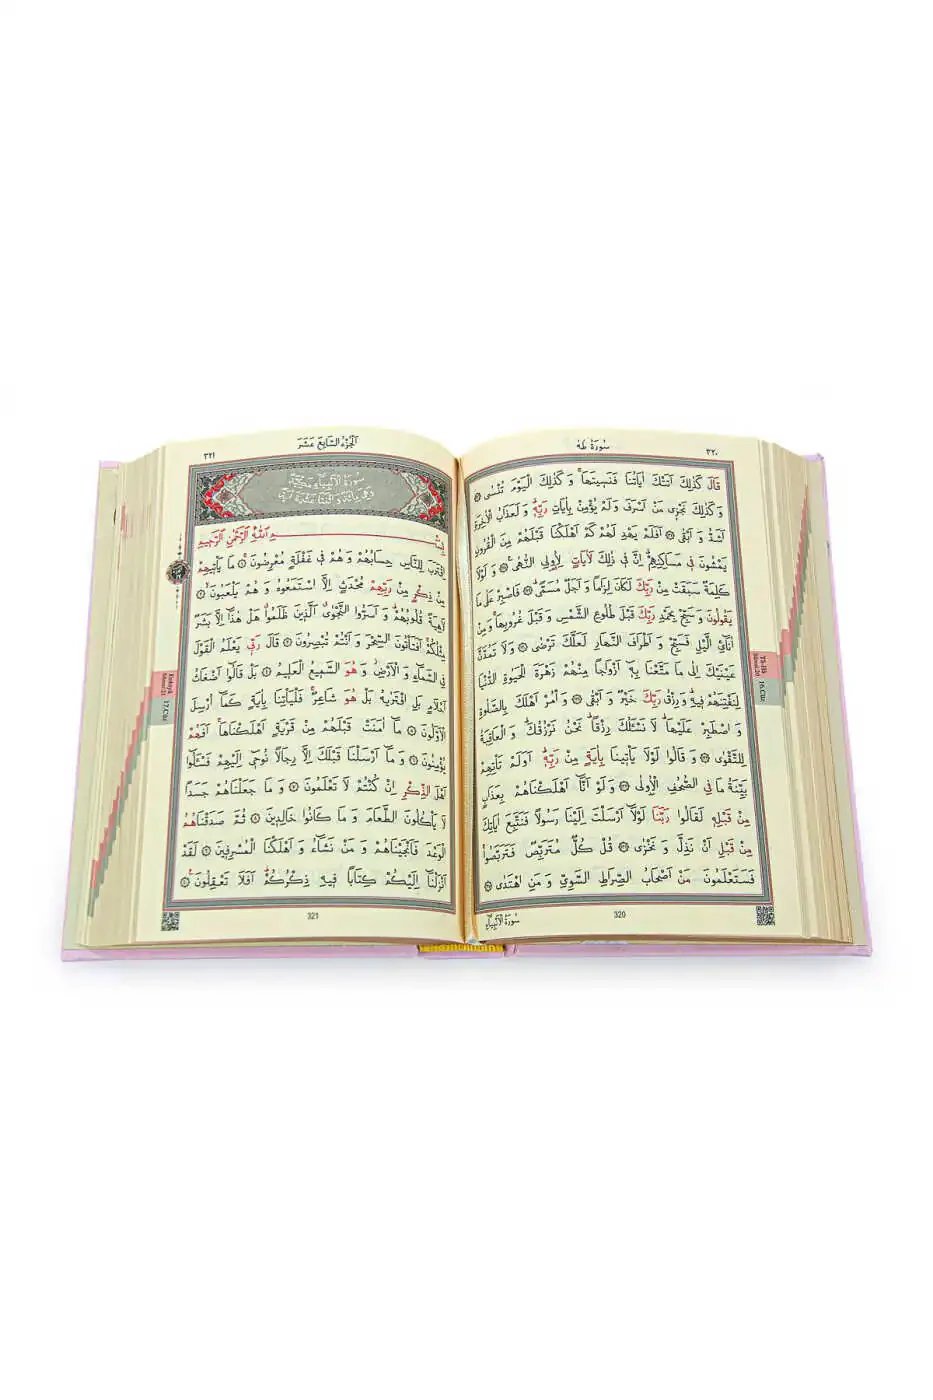 سُورَةُ طٰهٰ
٣٢٠
قَالَ كَذٰلِكَ اَتَتْكَ اٰيَاتُنَا فَنَسٖيتَهَاۚ وَكَذٰلِكَ الْيَوْمَ تُنْسٰى
وَكَذٰلِكَ نَجْزٖى مَنْ اَسْرَفَ وَلَمْ يُؤْمِنْ بِاٰيَاتِ رَبِّهٖۜ وَلَعَذَابُ الْاٰخِرَةِ
اَشَدُّ وَاَبْقٰى اَفَلَمْ يَهْدِ لَهُمْ كَمْ اَهْلَكْنَا قَبْلَهُمْ مِنَ الْقُرُونِ
يَمْشُونَ فٖى مَسَاكِنِهِمْۜ اِنَّ فٖى ذٰلِكَ لَاٰيَاتٍ لِاُولِى النُّهٰى وَلَوْلَا
كَلِمَةٌ سَبَقَتْ مِنْ رَبِّكَ لَكَانَ لِزَامًا وَاَجَلٌ مُسَمًّىۜ فَاصْبِرْ عَلٰى مَا
يَقُولُونَ وَسَبِّحْ بِحَمْدِ رَبِّكَ قَبْلَ طُلُوعِ الشَّمْسِ وَقَبْلَ غُرُوبِهَاۚ وَمِنْ
اٰنَآئِ الَّيْلِ فَسَبِّحْ وَاَطْرَافَ النَّهَارِ لَعَلَّكَ تَرْضٰى وَلَا تَمُدَّنَّ
عَيْنَيْكَ اِلٰى مَا مَتَّعْنَا بِهٖٓ اَزْوَاجًا مِنْهُمْ زَهْرَةَ الْحَيٰوةِ الدُّنْيَا
لِنَفْتِنَهُمْ فٖيهِۜ وَرِزْقُ رَبِّكَ خَيْرٌ وَاَبْقٰى وَأْمُرْ اَهْلَكَ بِالصَّلٰوةِ
وَاصْطَبِرْ عَلَيْهَاۜ لَا نَسْـَٔلُكَ رِزْقًاۜ نَحْنُ نَرْزُقُكَۜ وَالْعَاقِبَةُ
لِلتَّقْوٰى وَقَالُوا لَوْلَا يَأْتٖينَا بِاٰيَةٍ مِنْ رَبِّهٖۜ اَوَلَمْ تَأْتِهِمْ
بَيِّنَةُ مَا فِى الصُّحُفِ الْاُولٰى وَلَوْ اَنَّٓا اَهْلَكْنَاهُمْ بِعَذَابٍ
مِنْ قَبْلِهٖ لَقَالُوا رَبَّنَا لَوْلَٓا اَرْسَلْتَ اِلَيْنَا رَسُولًا فَنَتَّبِعَ اٰيَاتِكَ
مِنْ قَبْلِ اَنْ نَذِلَّ وَنَخْزٰى قُلْ كُلٌّ مُتَرَبِّصٌ فَتَرَبَّصُواۚ
فَسَتَعْلَمُونَ مَنْ اَصْحَابُ الصِّرَاطِ السَّوِىِّ وَمَنِ اهْتَدٰى
320
سُورَةُ الْاَنْبِيَٓاءِ
16.Cüz
Tâ-Hâ
Sûresi:20
اَلْجُزْءُ السَّابِعَ عَشَرَ
٣٢١
سُورَةُ الْاَنْبِيَٓاءِ مَكِّيَّةٌ
وَهِىَ مِائَةٌ وَاثْنَتَا عَشْرَةَ اٰيَةً
بِسْمِ اللّٰهِ الرَّحْمٰنِ الرَّحٖيمِ
اِقْتَرَبَ لِلنَّاسِ حِسَابُهُمْ وَهُمْ فٖى غَفْلَةٍ مُعْرِضُونَۚ مَا يَأْتٖيهِمْ
مِنْ ذِكْرٍ مِنْ رَبِّهِمْ مُحْدَثٍ اِلَّا اسْتَمَعُوهُ وَهُمْ يَلْعَبُونَۙ
لَاهِيَةً قُلُوبُهُمْۜ وَاَسَرُّوا النَّجْوٰىۗ اَلَّذٖينَ ظَلَمُواۗ هَلْ هٰذَٓا اِلَّا بَشَرٌ
مِثْلُكُمْۚ اَفَتَأْتُونَ السِّحْرَ وَاَنْتُمْ تُبْصِرُونَ قَالَ رَبّٖى يَعْلَمُ الْقَوْلَ
فِى السَّمَٓاءِ وَالْاَرْضِۘ وَهُوَ السَّمٖيعُ الْعَلٖيمُ بَلْ قَالُٓوا اَضْغَاثُ
اَحْلَامٍ بَلِ افْتَرٰيهُ بَلْ هُوَ شَاعِرٌۚ فَلْيَأْتِنَا بِاٰيَةٍ كَمَٓا اُرْسِلَ
الْاَوَّلُونَ مَٓا اٰمَنَتْ قَبْلَهُمْ مِنْ قَرْيَةٍ اَهْلَكْنَاهَاۚ اَفَهُمْ
يُؤْمِنُونَ وَمَٓا اَرْسَلْنَا قَبْلَكَ اِلَّا رِجَالًا نُوحٖٓى اِلَيْهِمْ فَسْـَٔلُٓوا
اَهْلَ الذِّكْرِ اِنْ كُنْتُمْ لَا تَعْلَمُونَ وَمَا جَعَلْنَاهُمْ جَسَدًا
لَا يَأْكُلُونَ الطَّعَامَ وَمَا كَانُوا خَالِدٖينَ ثُمَّ صَدَقْنَاهُمُ
الْوَعْدَ فَاَنْجَيْنَاهُمْ وَمَنْ نَشَٓاءُ وَاَهْلَكْنَا الْمُسْرِفٖينَ لَقَدْ
اَنْزَلْنَٓا اِلَيْكُمْ كِتَابًا فٖيهِ ذِكْرُكُمْۜ اَفَلَا تَعْقِلُونَ۟
321
17.Cüz
Enbiyâ
Sûresi:21